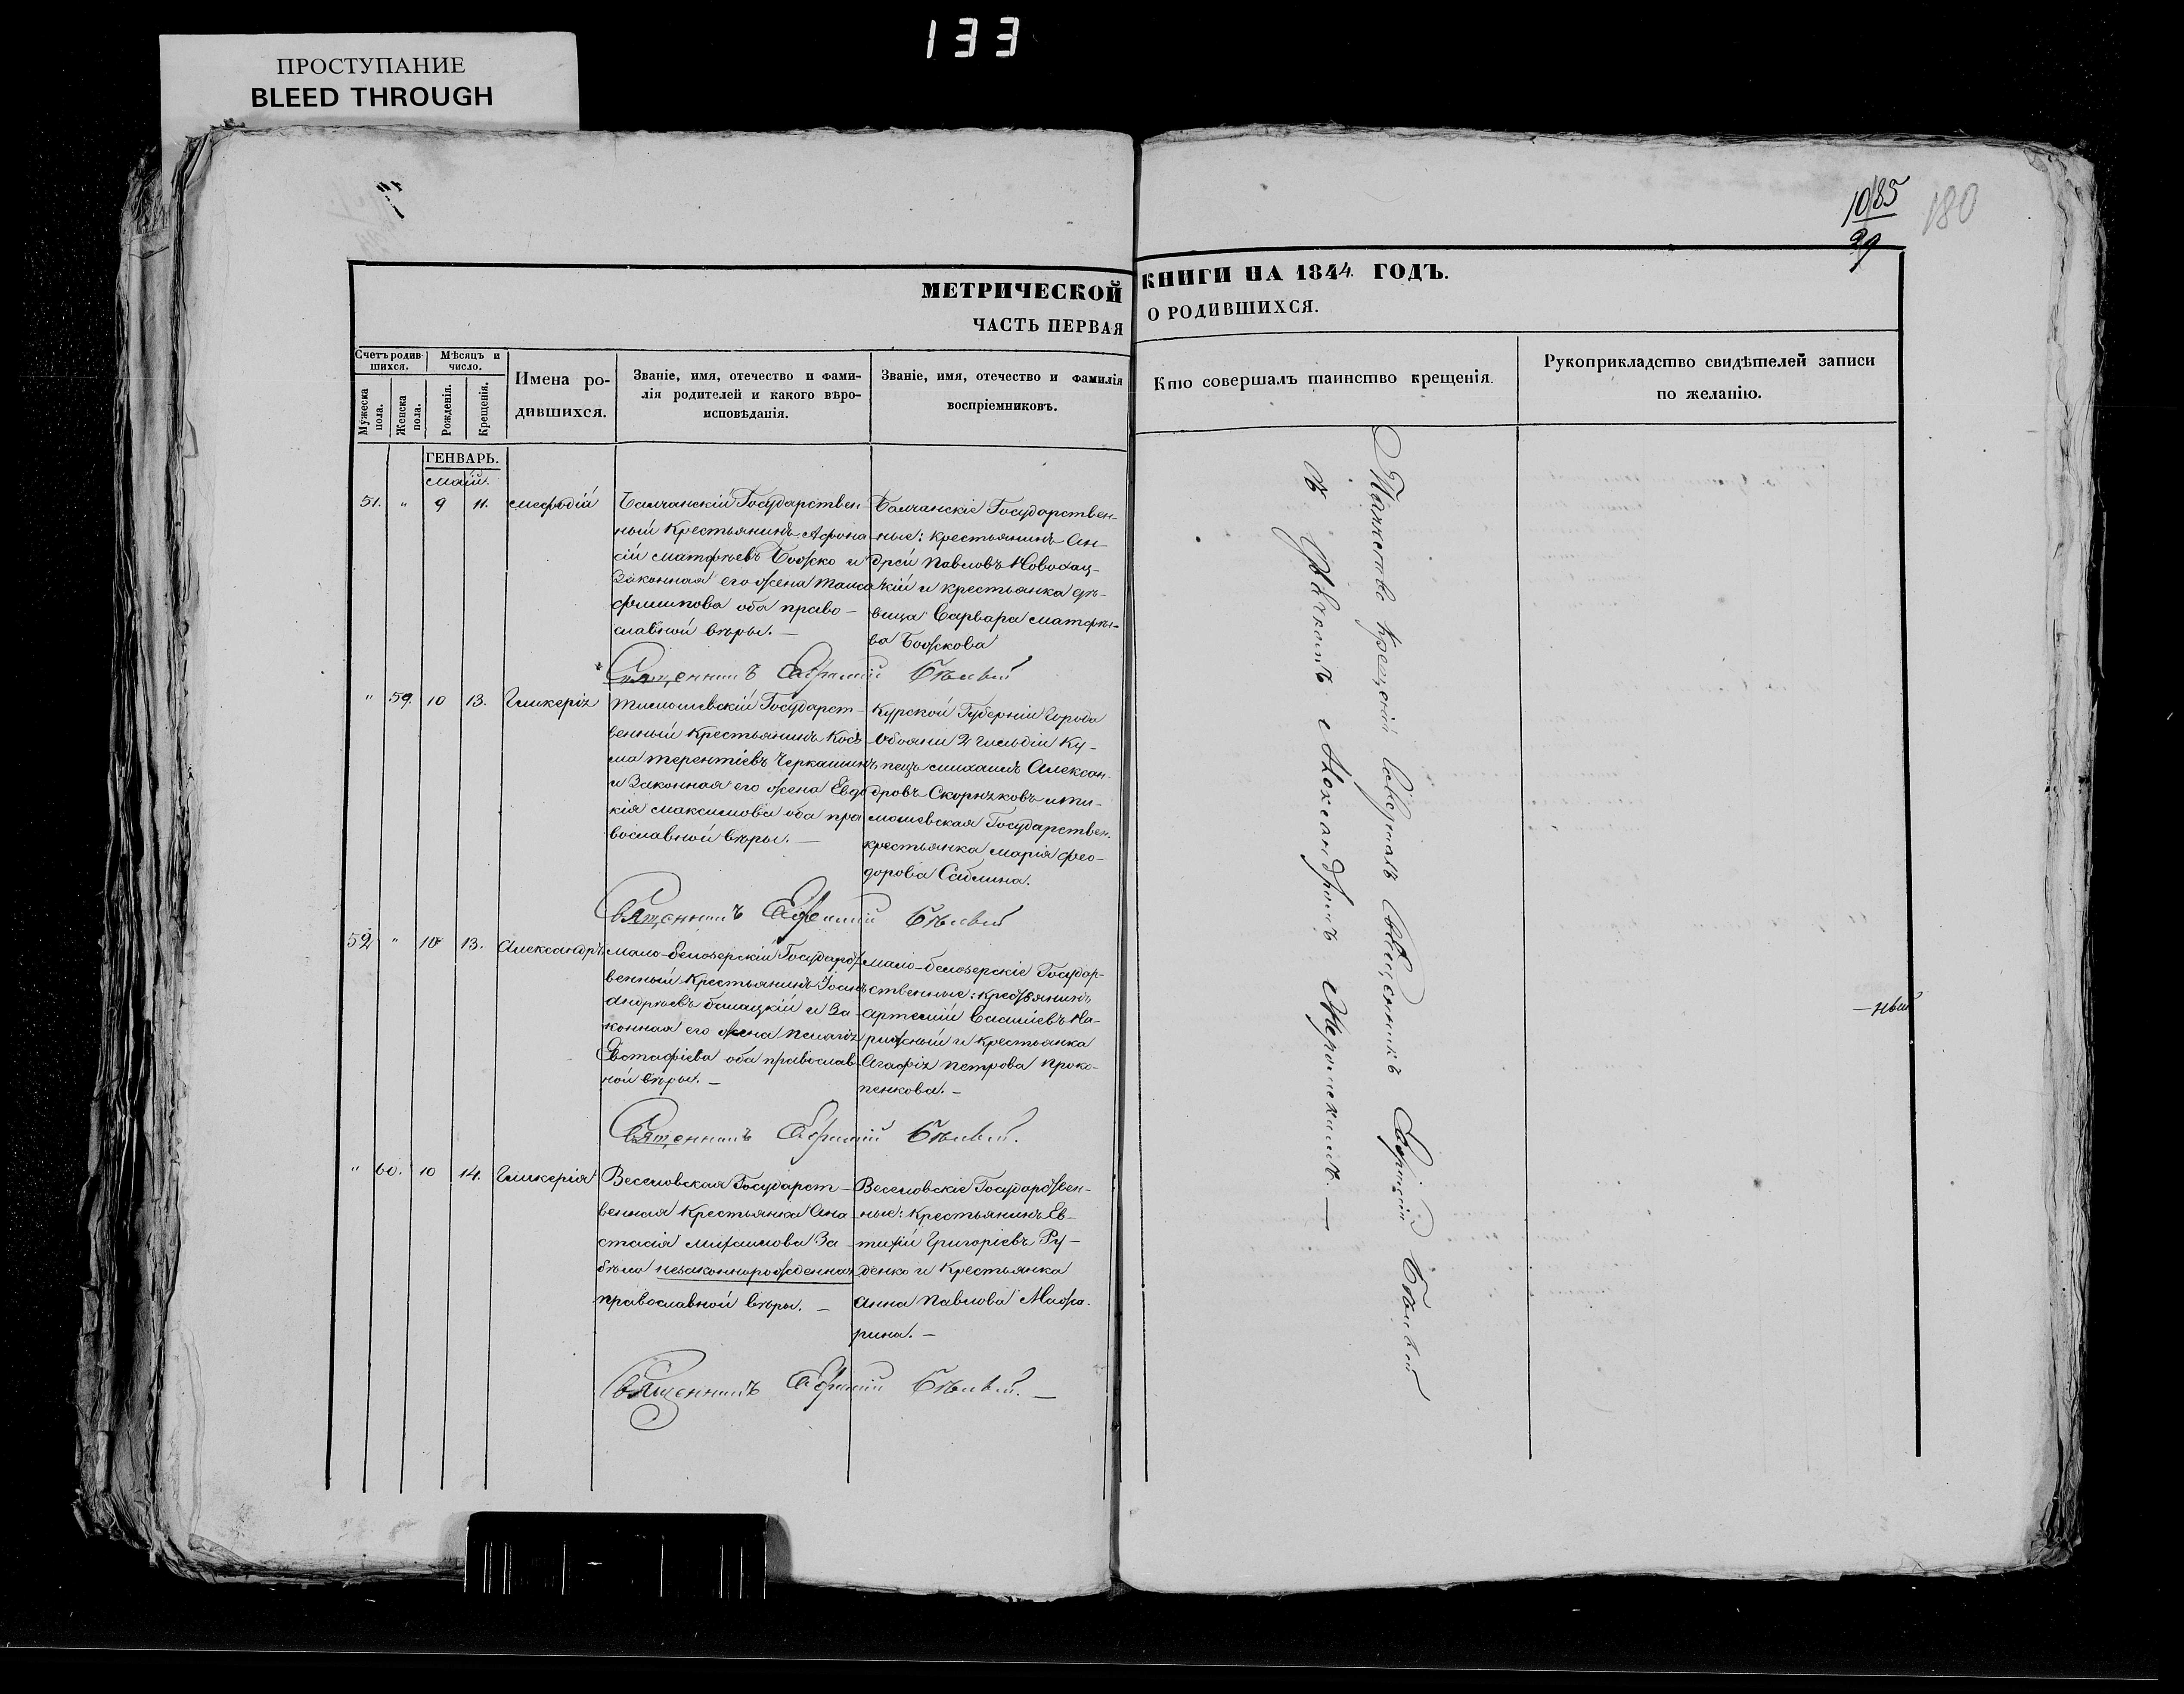 133
ПРОСТУПАНИЕ
BLEED THROUGH
1085
29
180
МЕТРИЧЕСКОЙ КНИГИ НА 1844. ГОДЪ.
ЧАСТЬ ПЕРВАЯ О РОДИВШИХСЯ.
Счетъ родив-
шихся.
Мѣсяцъ и
число.
Мужеска
пола.
Женска
пола.
Рожденія.
Крещенія.
Имена ро-
дившихся.
Званіе, имя, отечество и фами-
лія родителей и какого вѣро-
исповѣданія.
Званіе, имя, отечество и фамилія
воспріемниковъ.
Кто совершалъ таинство крещенія.
Рукоприкладство свидѣтелей записи
по желанію.
ГЕНВАРЬ.
Май.
51. " 9 11. Мефодій
Государствен-
ный Крестьянинъ Афона-
сій Матфѣевъ Божко и
Законная его жена Таиса
Филипова оба право-
славной вѣры. —
Государствен-
ные: крестьянинъ Ан-
дрей Павловъ
и крестьянка дѣ-
вица Варвара Матфѣе-
ва Божкова
Священникъ Бѣлый
" 59. 10 13. Гликерія
Тимошевскій Государст-
венный Крестьянинъ Кось-
ма Терентіевъ Черкашинъ
и Законная его жена Евдо
кія Максимова оба пра
вославной вѣры. —
Курской Губерніи Города
Обояни 2 Гильдіи Ку-
пецъ Михаилъ Алексан-
дровъ Скорняковъ и Ти-
мошевская Государствен.
крестьянка Марія Фео-
дорова Саблина.
Священникъ Бѣлый
52 " 10 13. Александръ
Мало-белозерскій Государст
венный Крестьянинъ
Андрѣевъ и За-
конная его жена Пелагія
Евстафіева оба православ-
ной вѣры. —
Мало-белозерскіе Государ-
ственные: крестьянинъ
Артемій Василіевъ На-
рижный и крестьянка
Агафія Петрова Проко-
пенкова. —
Священникъ Бѣлый.
" 60. 10 14. Гликерія
Веселовская Государст-
венная Крестьянка Ана-
стасія Михаилова За-
бѣла незаконнорожденная
православной вѣры. —
Веселовскіе Государствен-
ные: крестьянинъ Ев-
тихій Григоріевъ Ру-
денко и Крестьянка
Анна Павлова Мажа-
рина. —
Священникъ Бѣлый. —
Таинство Крещенія Совершалъ Священникъ Бѣлый
съ Александромъ